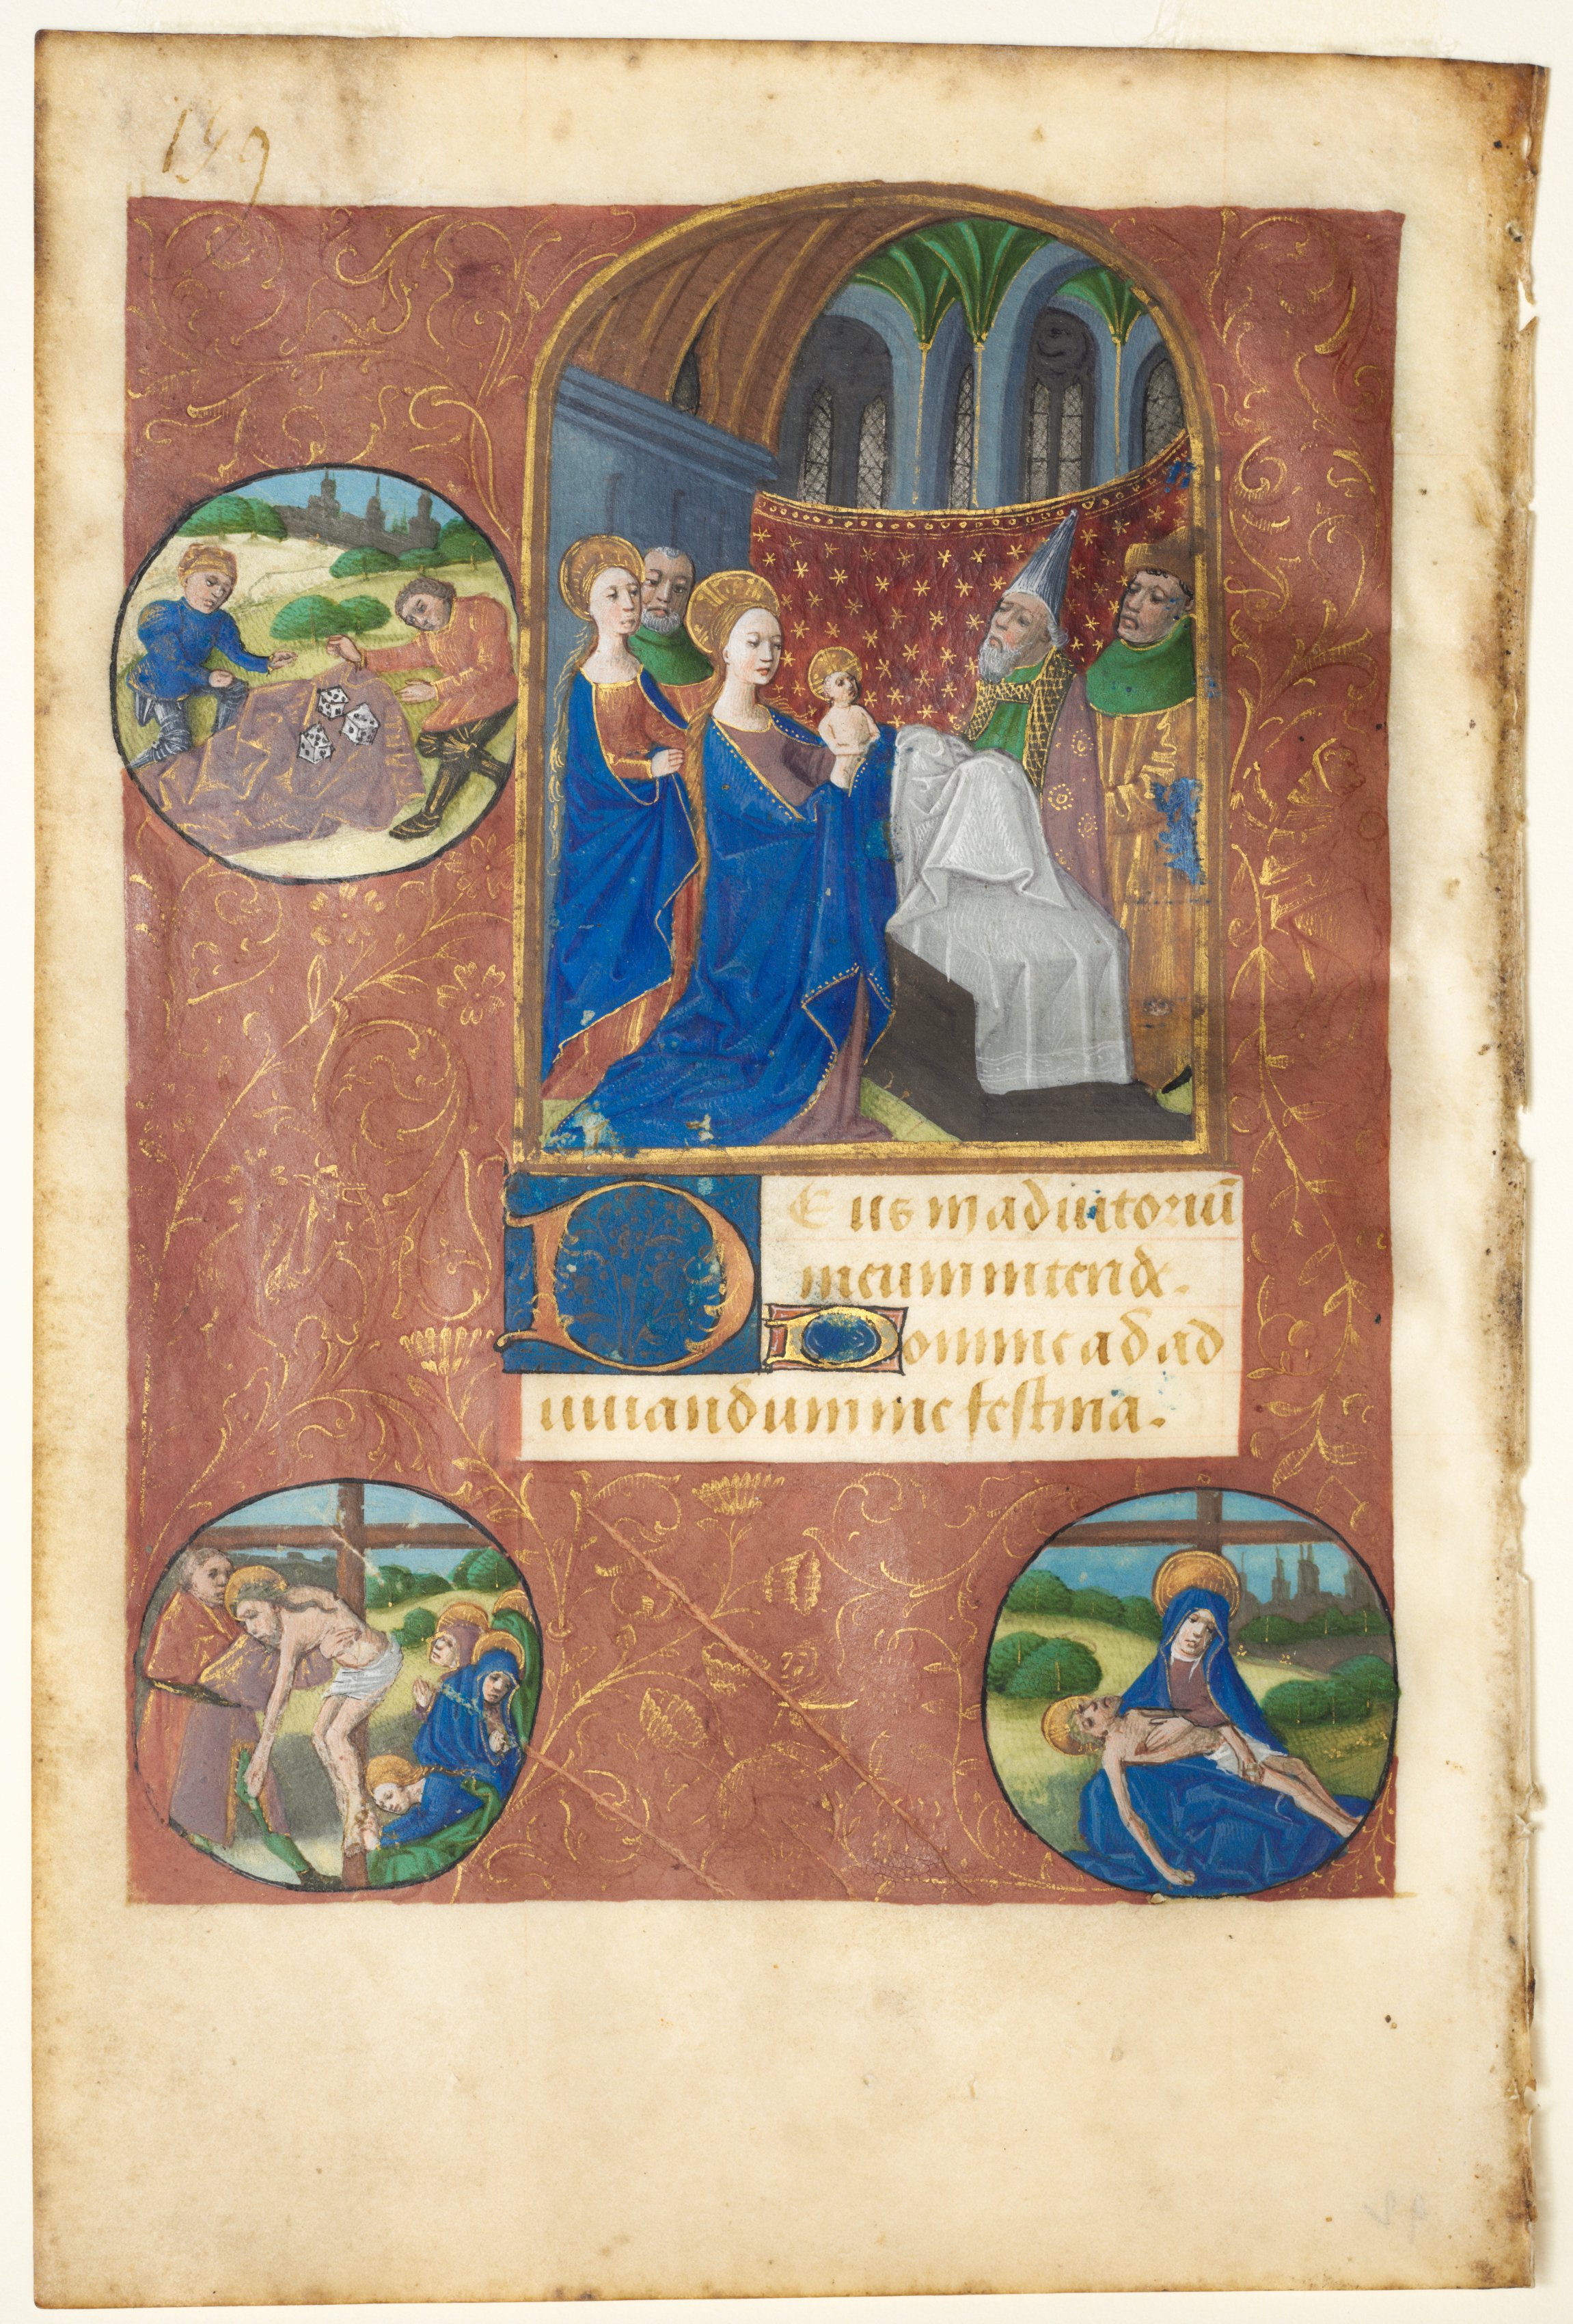 159
DEus in adiutoriū
meum intende.
Domine ad ad
iuuandum me festina.